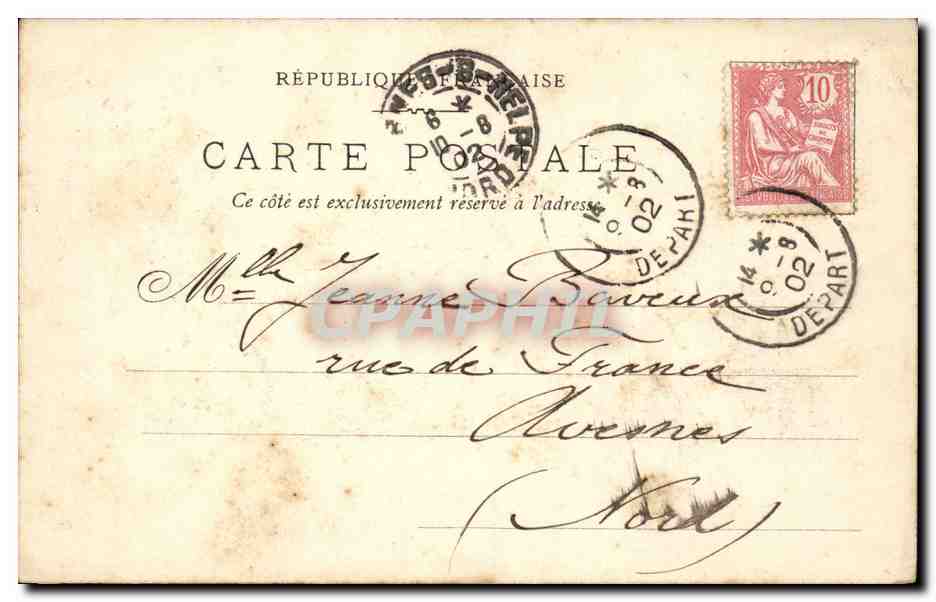 RÉPUBLIQUE FRANÇAISE
CARTE POSTALE
Ce côté est exclusivement réservé à l'adresse
10
DROITS DE L'HOMME
NES-S-HELPE
8 -8
02
NORD
14 * -8
02
DEPART
14 * -8
02
DEPART
Mlle Jeanne Baveux
rue de France
Avesnes
(Nord)
CPAPHIL